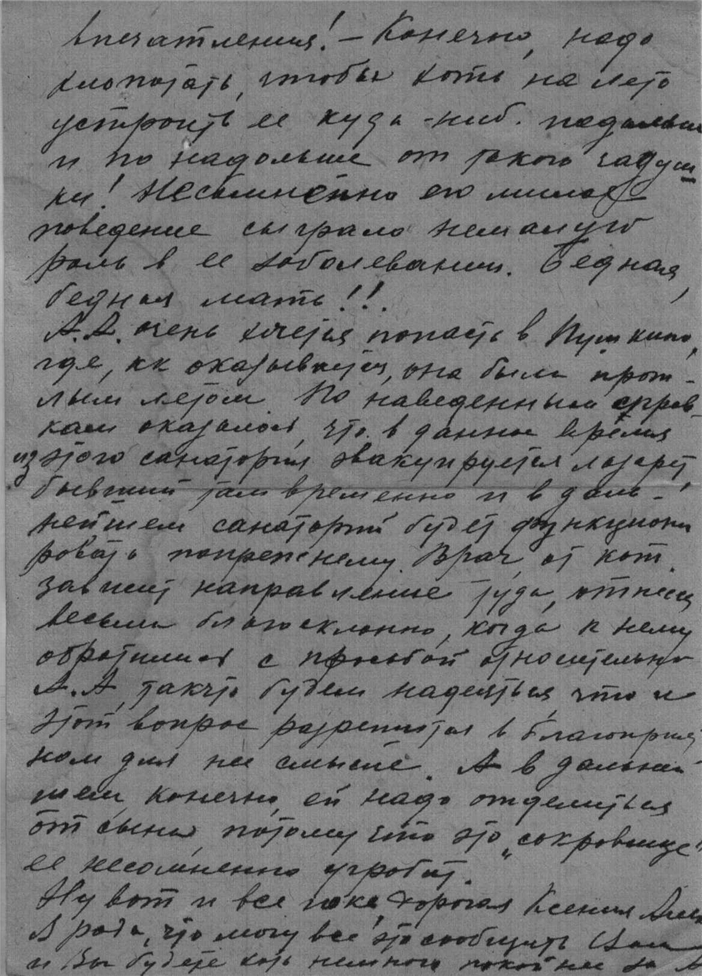 впечатления! – Конечно, надо
хлопотать, чтобы хоть на лето
устроить ее куда-ниб. подальше
и по надольше от такого гадуш-
ки! Несомненно его милое
поведение сыграло немалую
роль в ее заболевании. Бедная,
бедная мать!!.
А.А. очень хочется попасть в Пушкино,
где, кк оказывается, она была прош-
лым летом. По наведенным справ-
кам оказалось, что в данное время
из этого санатория эвакуируется лазарет,
бывший там временно и в даль-
нейшем санаторий будет функциони
ровать попрежнему. Врач, от кот.
зависит направление туда, отнесся
весьма благосклонно, когда к нему
обратились с просьбой относительно
А.А, такчто будем надеяться, что и
этот вопрос разрешится в благоприят
ном для нее смысле. А в дальней
шем, конечно, ей надо отделиться
от сына, потому что это „сокровище"
ее несомненно угробит.
Ну вот и все пока, дорогая Ксения
Я рада, что могу все это сообщить Вам
и Вы будете хоть немного покойнее за